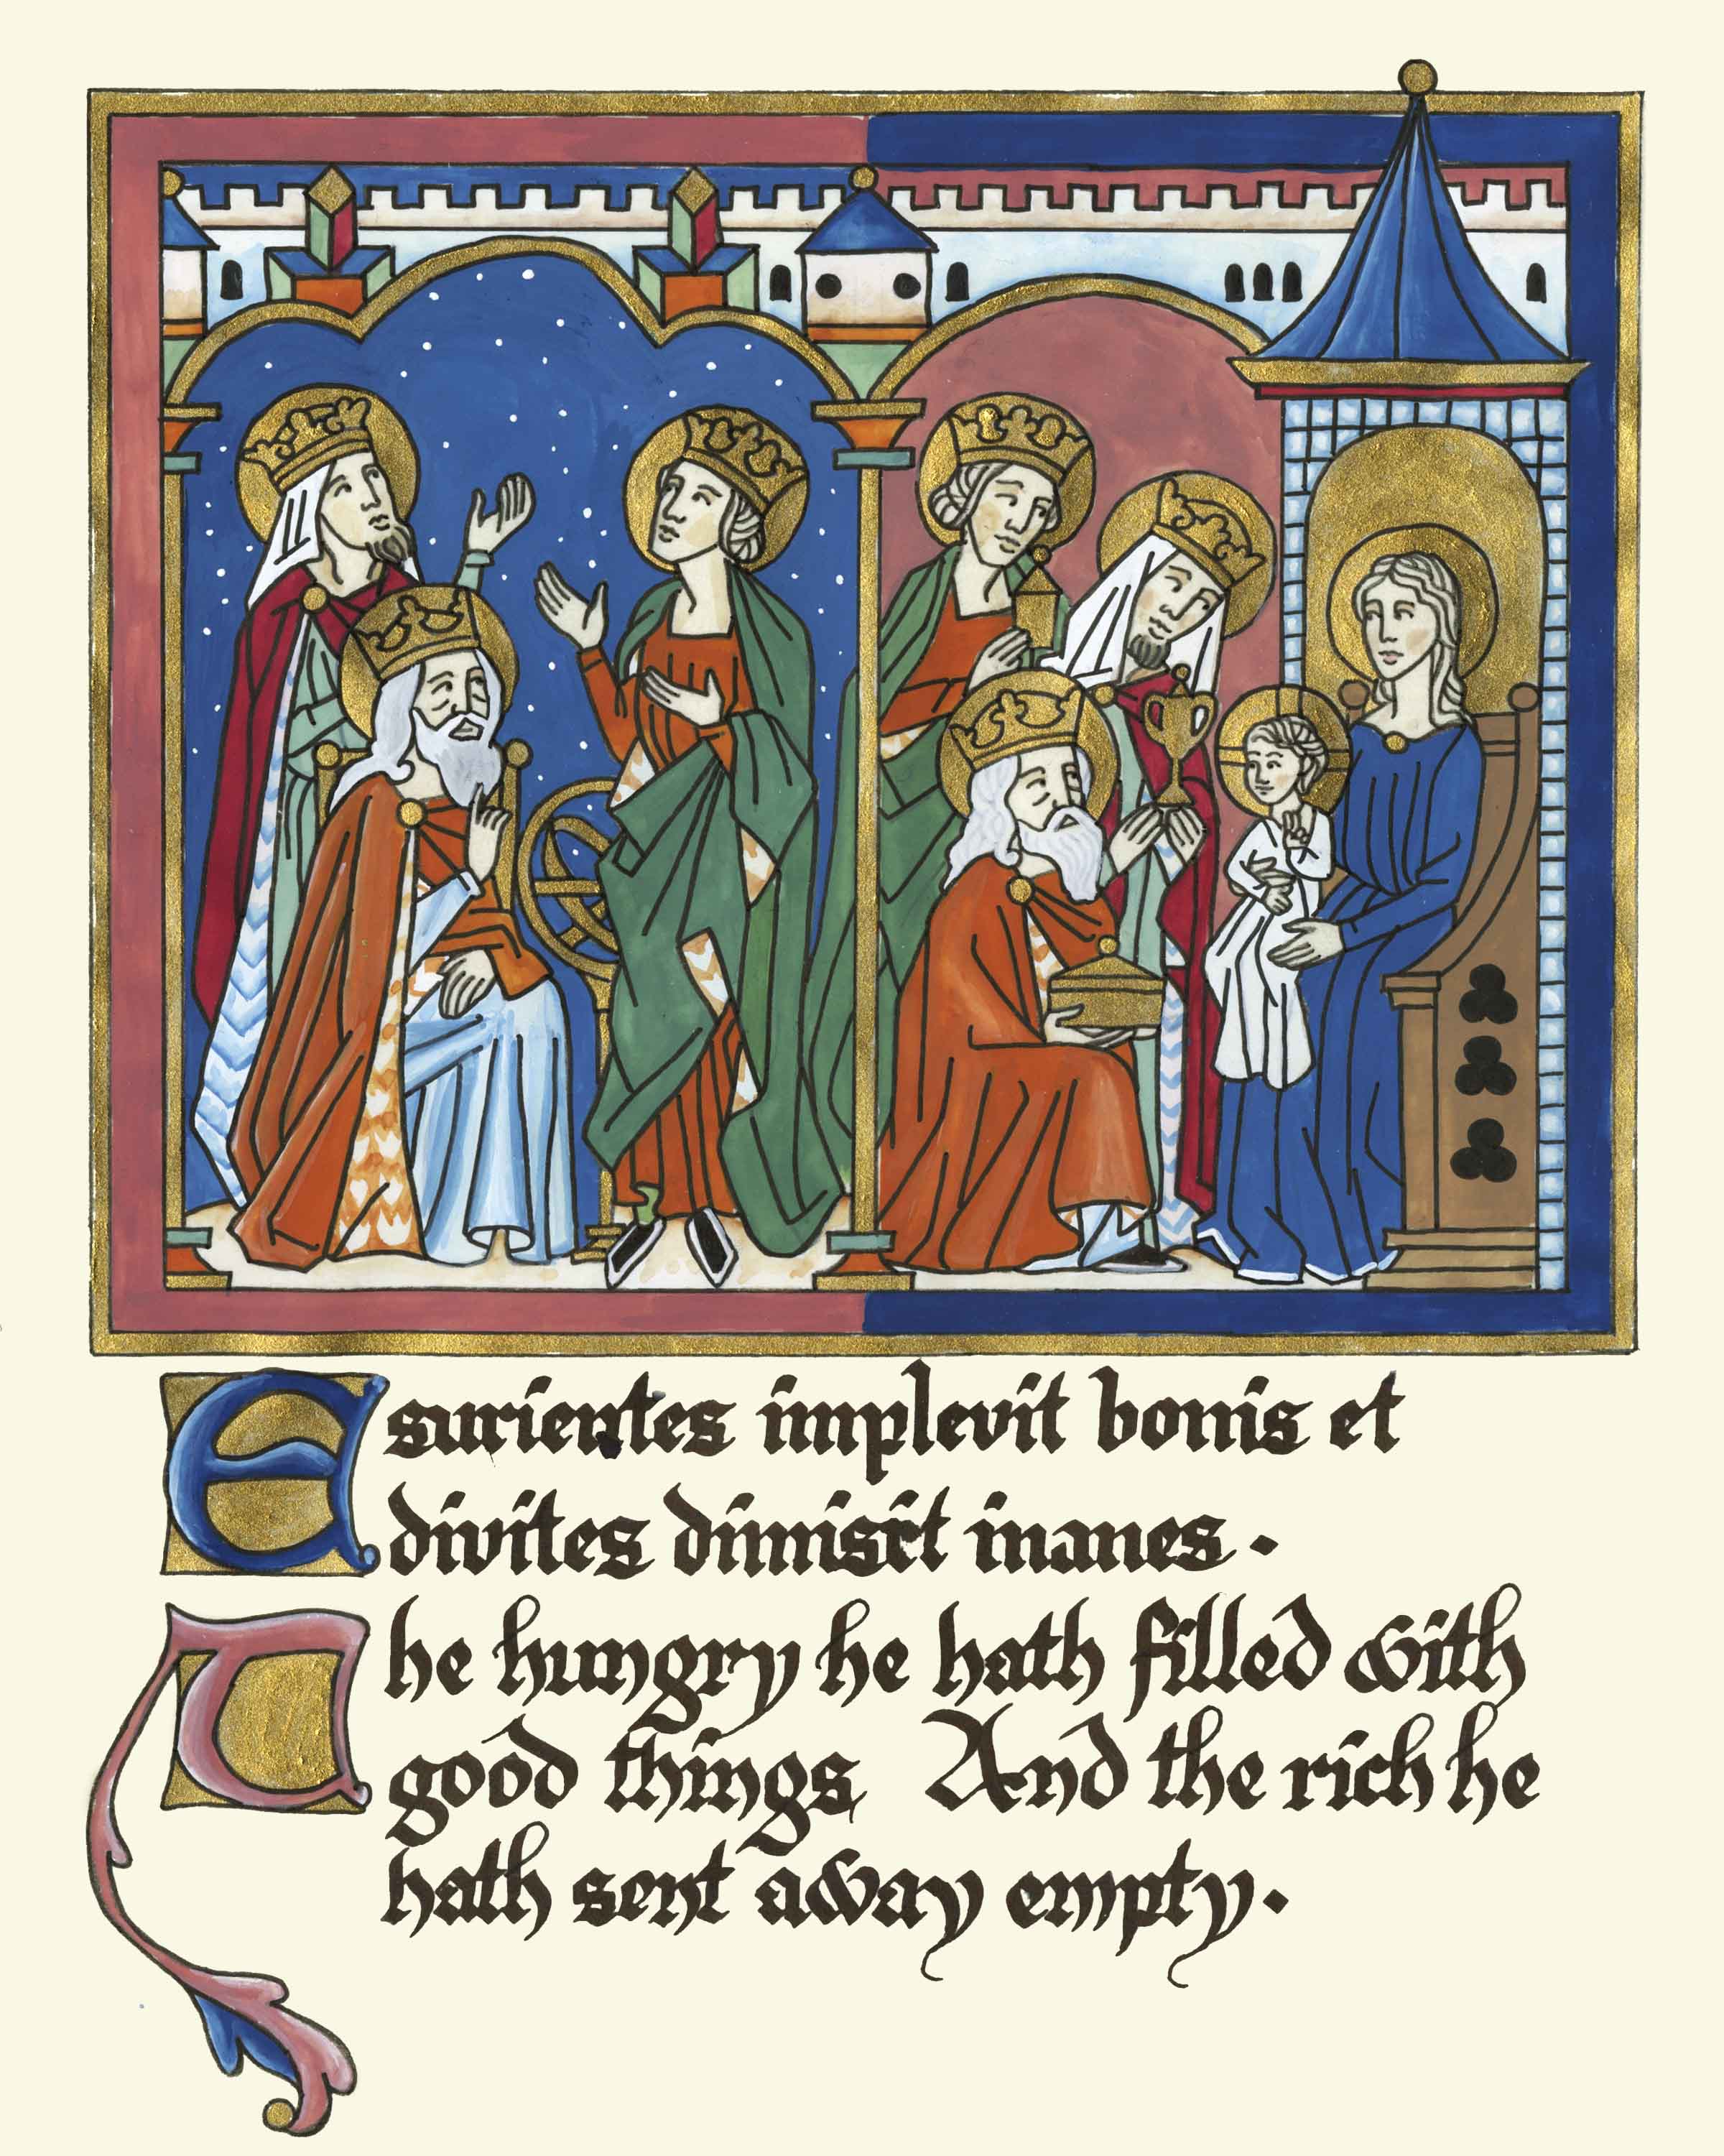 Esurientes implevit bonis et
divites dimisit inanes.
The hungry he hath filled with
good things, And the rich he
hath sent away empty.